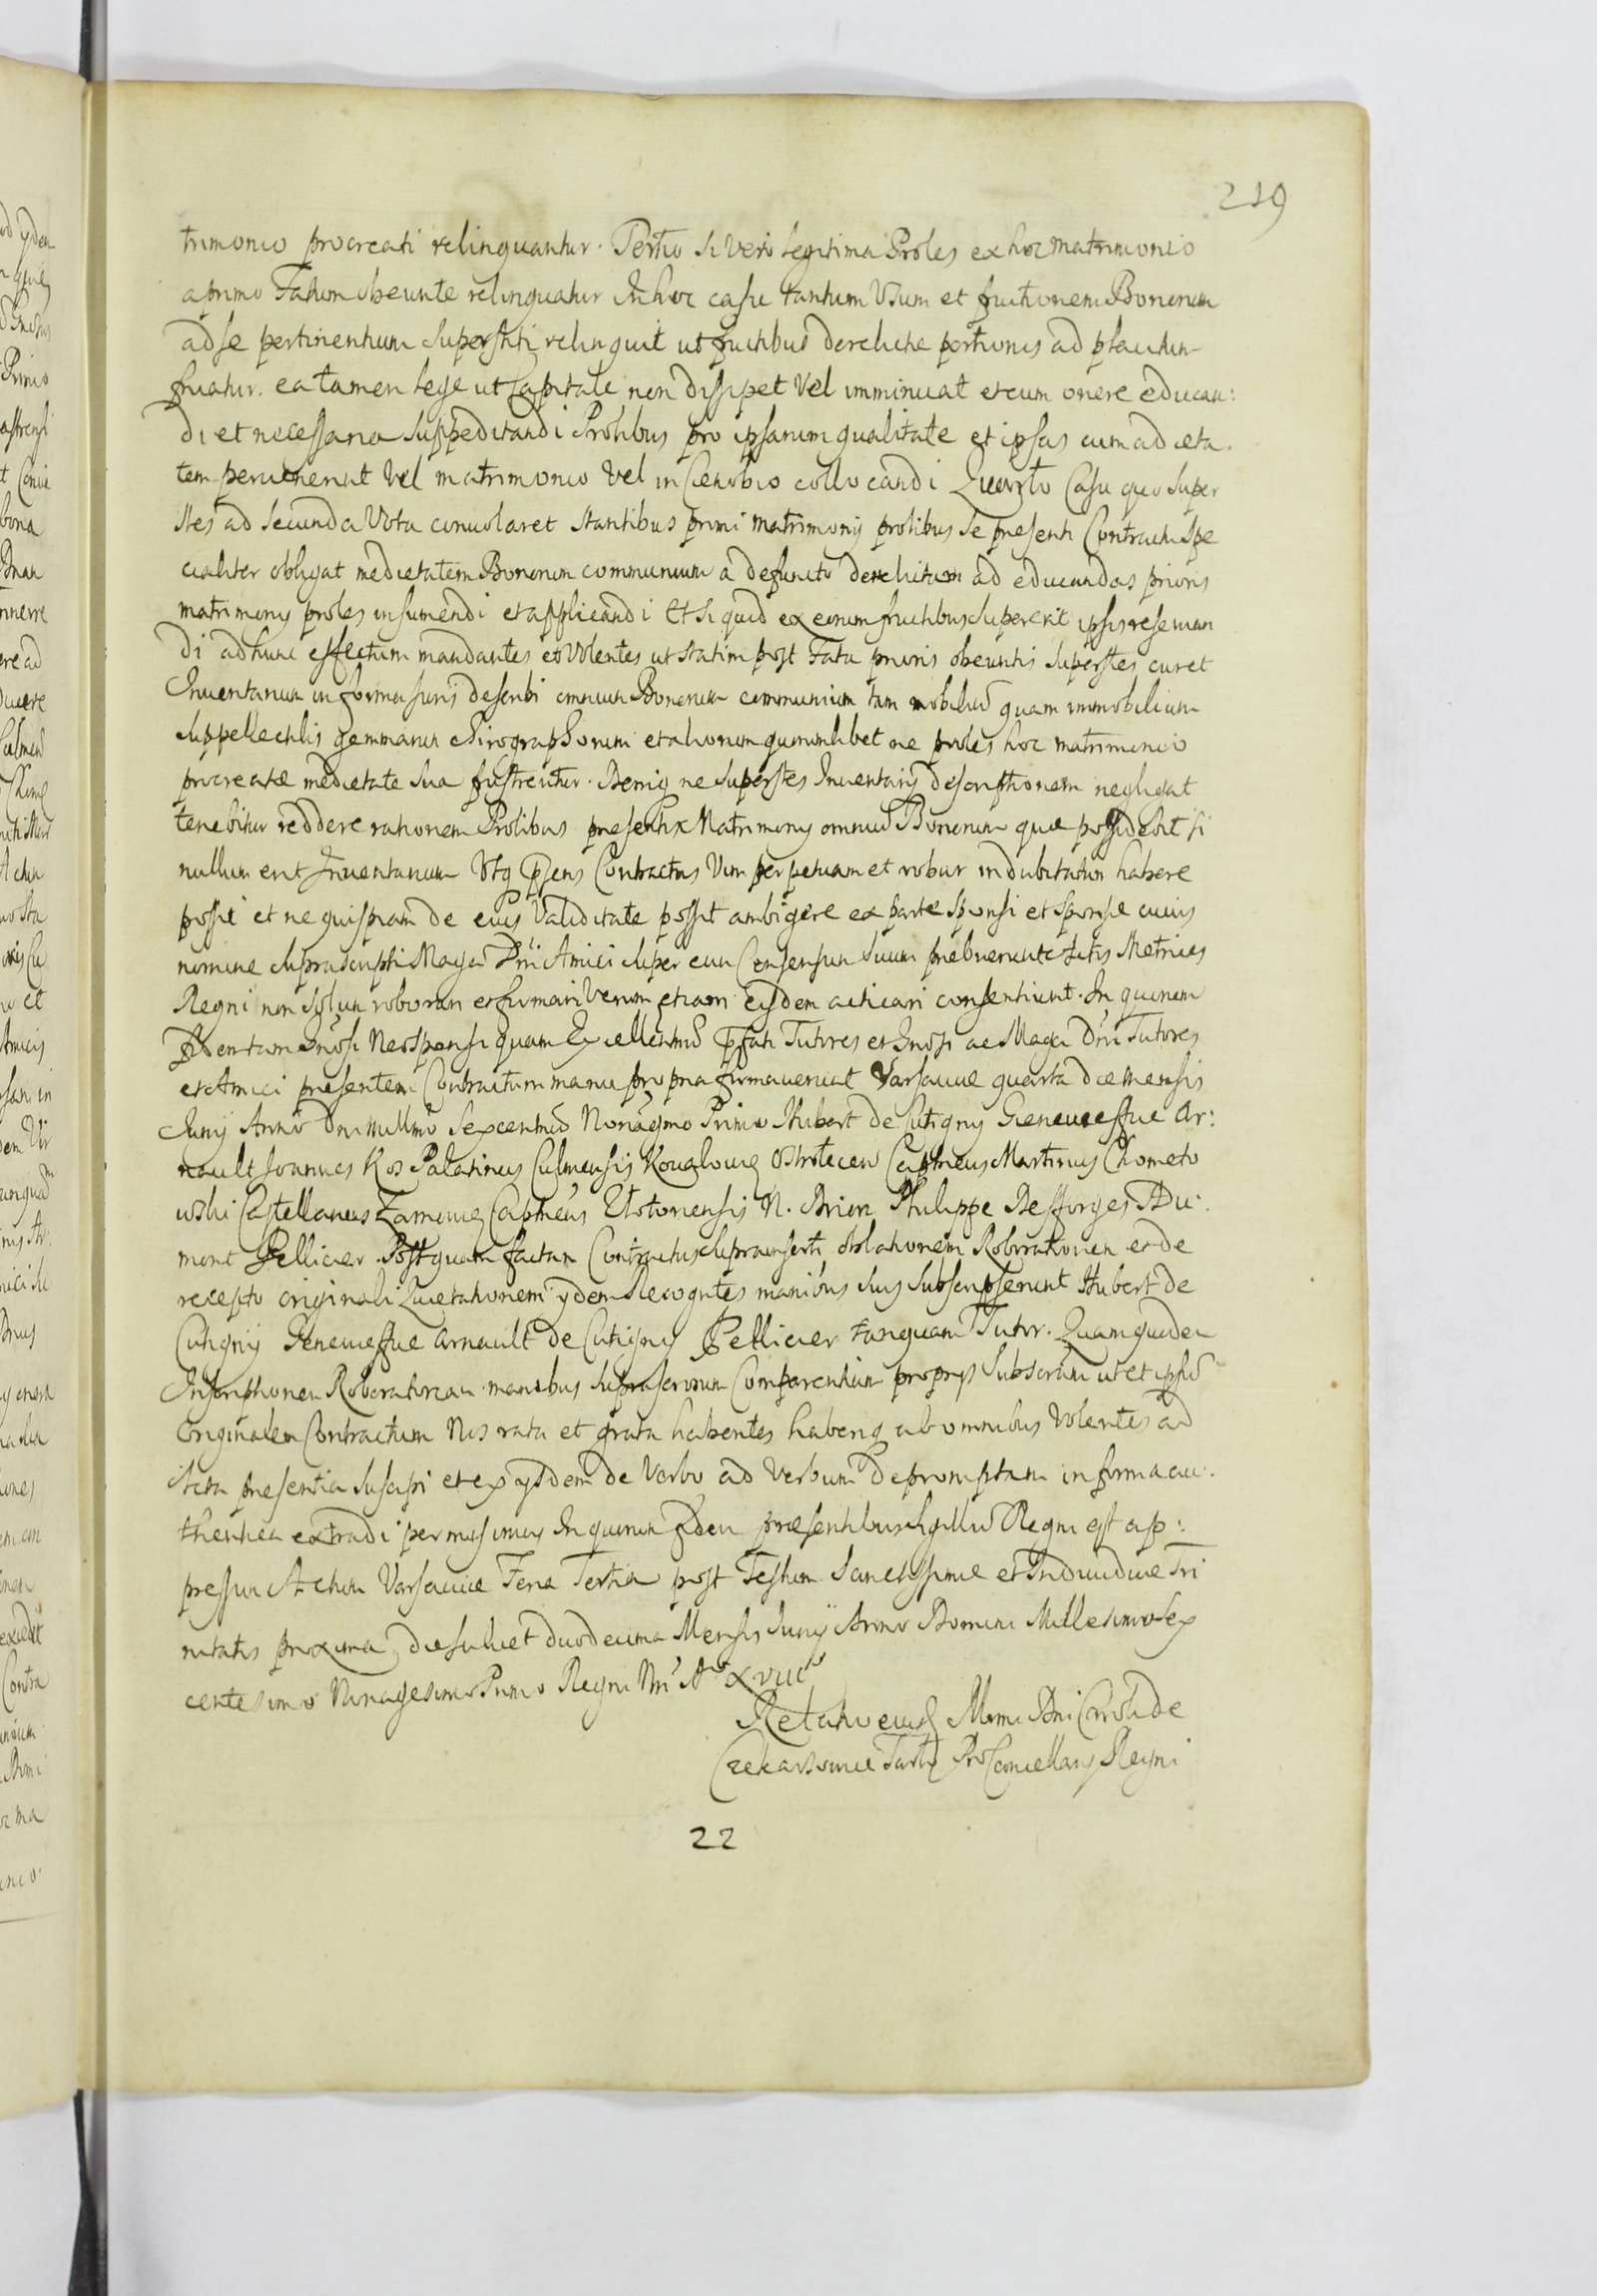 219
trimonio procreati relinquantur. Tertio si vero legitima Proles ex hoc matrimonio
a primo Fatum obeunte relinquatur In hoc casu tantum Usum et fruitionem Bonorum
ad se pertinentium superstiti relinquit ut fructibus derelictæ portionis ad placitum
fruatur. ea tamen lege ut Capitale non dissipet vel imminuat et cum onere educan:
di et necessaria suppeditandi Prolibus pro ipsarum qualitate et ipsas cum ad æta.
tem pervenerint vel matrimonio vel in Cenobio collocandi Quarto Casu quo super
stes ad secunda Vota convolaret stantibus primi matrimonij prolibus se presenti Contractu spe
cialiter obligat medietatem Bonorum communium a defuncto derelictam ad educandas prioris
matrimonij proles insumendi et applicandi Et si quid ex eorum fructibus supererit ipsis reservan
di ad hunc effectum mandantes et volentes ut statim post Fata prioris obeuntis superstes curet
Inventarium in forma Juris describi omnium Bonorum communium tam mobiliũ quam immobilium
suppellectilis gemmarum chirographorum et aliorum quorumlibet ne proles hoc matrimonio
procreatæ medietate sua frustrentur. Deniq ne superstes Inventarij descriptionem negligat
tenebitur reddere rationem Prolibus presentis Matrimonij omniũ Bonorum quæ possidebit si
nullum erit Inventarium Utq pñs Contractus Vim perpetuam et robur indubitatum habere
possit et ne quispiam de eius validitate possit ambigere ex parte Sponsi et Sponsæ cuius
nomine suprascripti Magci Dni Amici super eum Consensum suum præbuerunt Actis Metrices
Regni non solum roborari et firmari Verum etiam eisdem acticari consentiunt. In quorum
fidem tam Gnosi Neosponsi quam Excellentmi Pfati Tutores et Gnosi ac Magci Dni Tutores
et Amici presentem Contractum manu propria firmaverunt Varsaviæ quarta die mensis
Juny Anno Dni millmo sexcentmo Nonagmo Primo Hubert de Cutigny Geneuiesfue Ar:
nault Joannes Kos Palatinus Culmensis Ostrolecen Capneus Martinus Chometo
wski Castellanus Capneus Utstonensis N. Brion Philippe Desforges Du:
mont Pellicier. Post quam factam Contractus suprainserti oblationem Roborationem et de
recepto originali Quietationem ydem Recogntes manibus suis subscripserunt Hubert de
Cutigny Geneuiesfue Arnault de Cutigny Pellicier tanquam Tutor. Quam quidem
Inscriptionem Roboratoriam manibus suprascriptorum Comparentium proprys subscriptam ut et ipsũ
Originalem Contractum Nos rata et grata habentes haberiq ab omnibus Volentes ad
Acta presentia suscipi et ex ysdem de Verbo ad Verbum depromptam in forma au:
thentica extradi permisimus In quorum fidem præsentibus sigillũ Regni est ap:
pressum Actum Varsaviæ Feria Tertia post Festum Sanctissimæ et Individuæ Tri
nitatis proxima, die scilicet duodecima Mensis Juny Anno Domini Millesimo Sex
centesimo Nonagesimo Primo Regni Nri Ao XVIIIo
Relatio eiusd Mmi Dni Caroli de
Prolcancellarij Regni
22